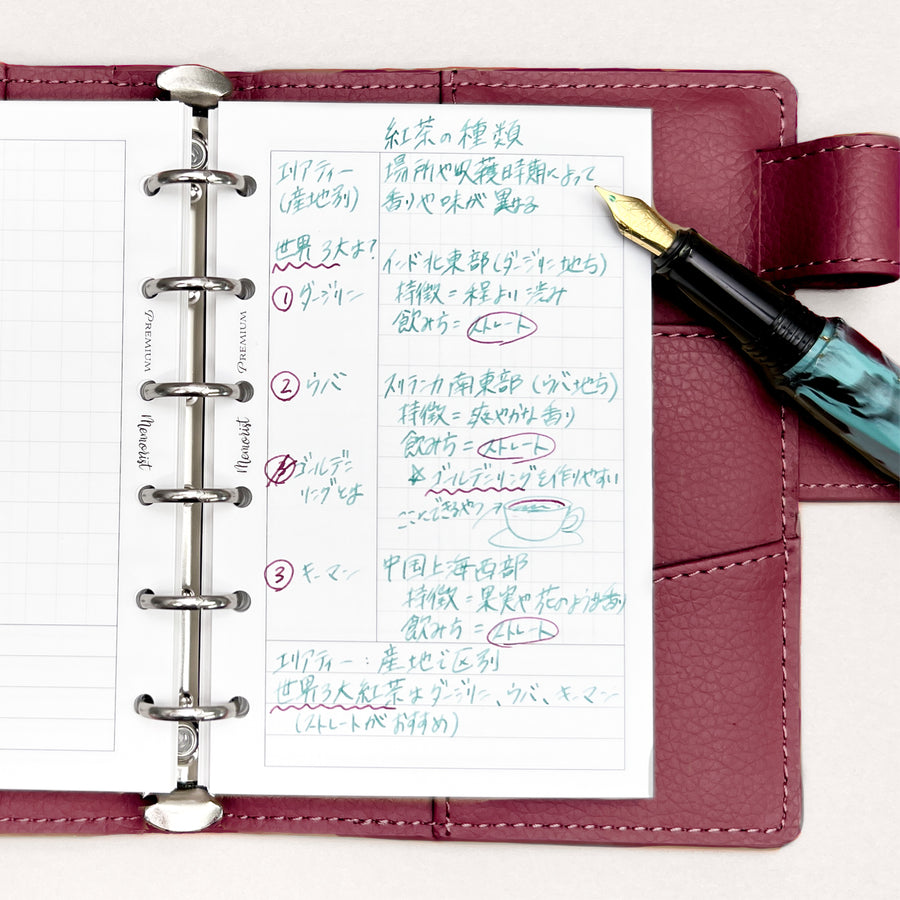 紅茶の種類
エリアティー
(産地別)
場所や収穫時期によって
香りや味が異なる
世界3大は?
① ダージリン
インド北東部(ダージリン地方)
特徴=程よい渋み
飲み方=ストレート
② ウバ
スリランカ南東部(ウバ地方)
特徴=爽やかな香り
飲み方=ストレート
ゴールデン
リングとは
☆ゴールデンリングを作りやすい
ここにできるやつ↗
③ キーマン
中国上海西部
特徴=果実や花のような香り
飲み方=ストレート
エリアティー:産地で区別
世界3大紅茶はダージリン、ウバ、キーマン
(ストレートがおすすめ)
PREMIUM
Memorist
PREMIUM
Memorist